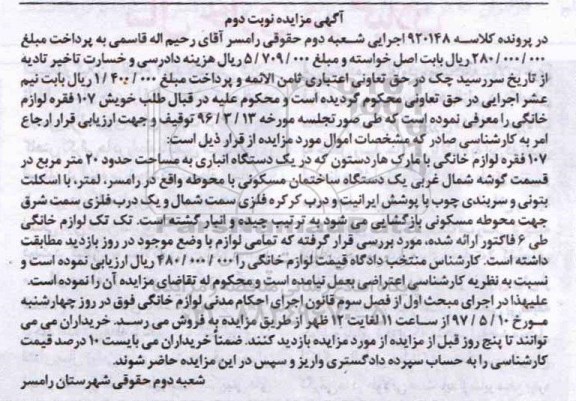 آگهی مزایده نوبت دوم
در پرونده کلاسه ۹۲۰۱۴۸ اجرایی شعبه دوم حقوقی رامسر آقای رحیم اله قاسمی به پرداخت مبلغ
۲۸۰/۰۰۰/۰۰۰ ریال بابت اصل خواسته و مبلغ ۵/۷۰۹/۰۰۰ ریال هزینه دادرسی و خسارت تاخیر تادیه
از تاریخ سررسید چک در حق تعاونی اعتباری ثامن الائمه و پرداخت مبلغ ۱/۴۰۰/۰۰۰ ریال بابت نیم
عشر اجرایی در حق تعاونی محکوم گردیده است و محکوم علیه در قبال طلب خویش ۱۰۷ فقره لوازم
خانگی را معرفی نموده است که طی صور تجلسه مورخه ۹۶/۳/۱۳ توقیف و جهت ارزیابی قرار ارجاع
امر به کارشناسی صادر که مشخصات اموال مورد مزایده از قرار ذیل است:
۱۰۷ فقره لوازم خانگی با مارک هاردستون که در یک دستگاه انباری به مساحت حدود ۲۰ متر مربع در
قسمت گوشه شمال غربی یک دستگاه ساختمان مسکونی با محوطه واقع در رامسر، لمتر، با اسکلت
بتونی و سربندی چوب با پوشش ایرانیت و درب کرکره فلزی سمت شمال و یک درب فلزی سمت شرق
جهت محوطه مسکونی بازگشایی می شود به ترتیب چیده و انبار گشته است. تک تک لوازم خانگی
طی ۶ فاکتور ارائه شده، مورد بررسی قرار گرفته که تمامی لوازم با وضع موجود در روز بازدید مطابقت
داشته است. کارشناس منتخب دادگاه قیمت لوازم خانگی را ۴۸۰/۰۰۰/۰۰۰ ریال ارزیابی نموده است و
نسبت به نظریه کارشناسی اعتراضی بعمل نیامده است و محکوم له تقاضای مزایده آن را نموده است.
علیهذا در اجرای مبحث اول از فصل سوم قانون اجرای احکام مدنی لوازم خانگی فوق در روز چهارشنبه
مورخ ۹۷/۵/۱۰ از ساعت ۱۱ لغایت ۱۲ ظهر از طریق مزایده به فروش می رسد. خریداران می می
توانند تا پنج روز قبل از مزایده از مورد مزایده بازدید کنند. ضمناً خریداران می بایست ۱۰ درصد قیمت
کارشناسی را به حساب سپرده دادگستری واریز و سپس در این مزایده حاضر شوند.
شعبه دوم حقوقی شهرستان رامسر